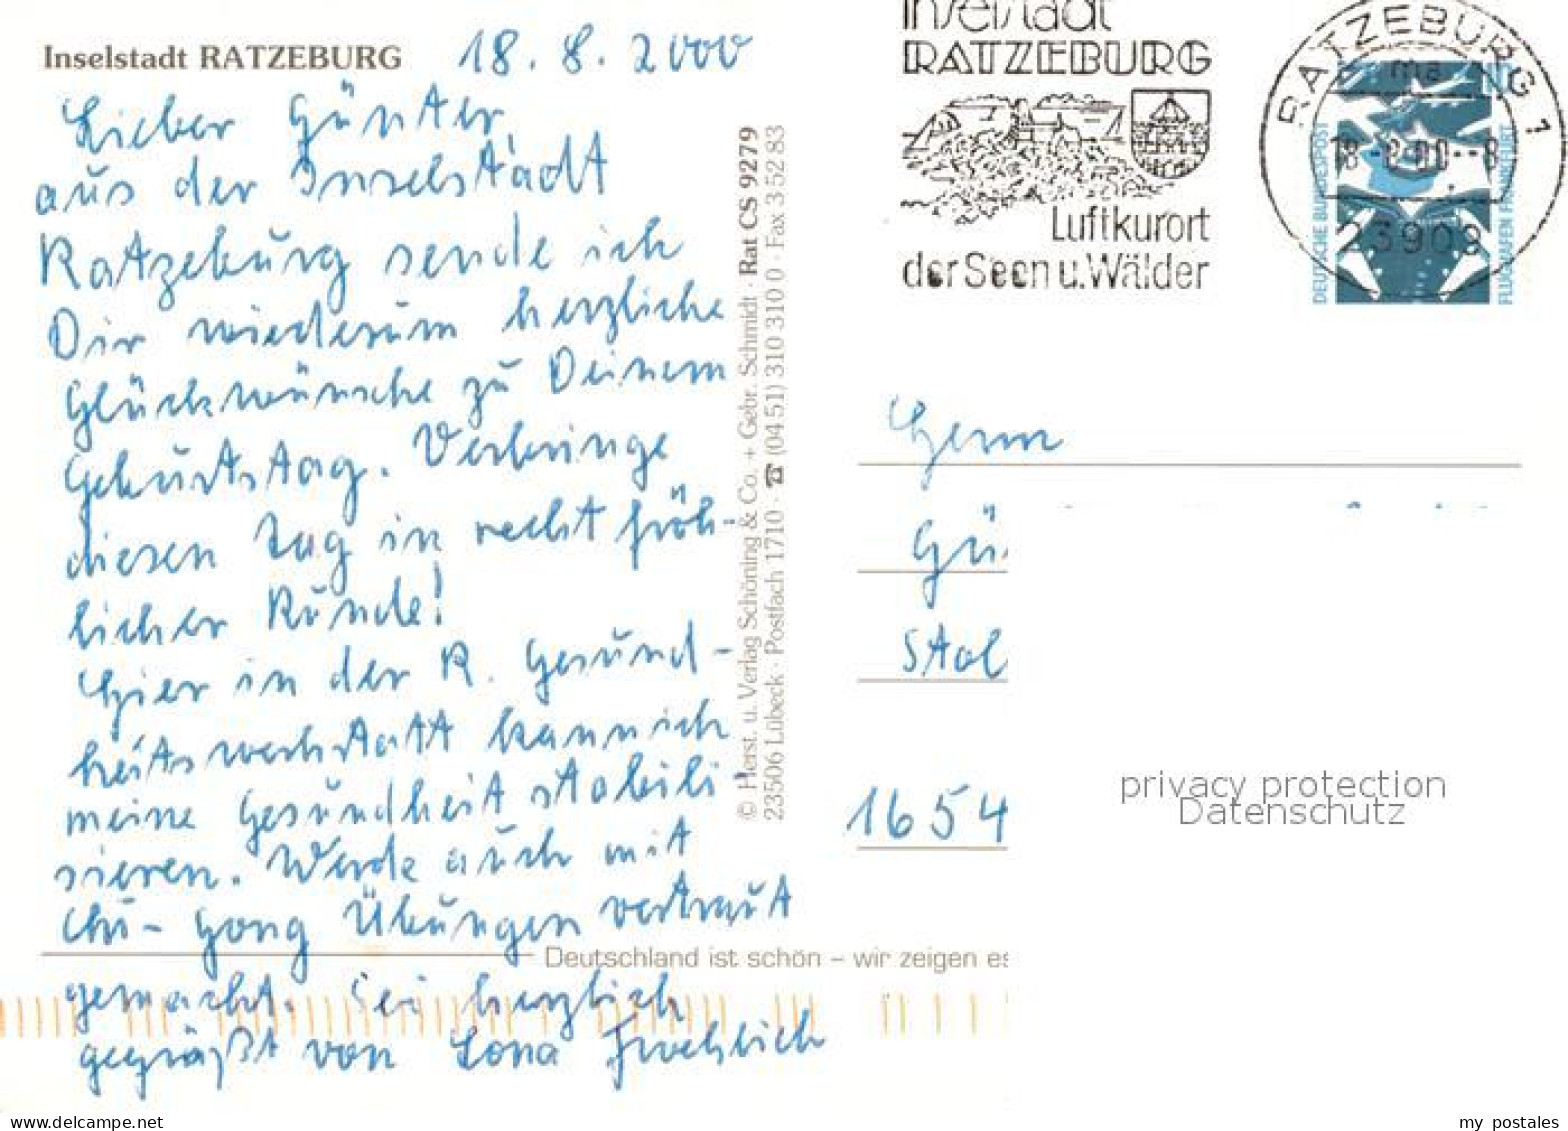 Inselstadt RATZEBURG 18.8.2000
Lieber Günter,
aus der Inselstadt
Ratzeburg sende ich
Dir wiederum herzliche
Glückwünsche zu Deinem
Geburtstag. Verbringe
diesen Tag in recht fröh-
licher Runde!
Hier in der R. Gesund-
heitswerkstatt kann ich
meine Gesundheit stabili
sieren. Werde auch mit
Chi-Gong Übungen vertraut
gemacht. Sei herzlich
gegrüßt von Lona Froehlich
© Herst. u. Verlag Schöning & Co. + Gebr. Schmidt · Rat CS 9279
23506 Lübeck · Postfach 1710 · ☎ (04 51) 310 310 0 · Fax 3 52 83
Deutschland ist schön – wir zeigen es
Inselstadt
RATZEBURG
Luftkurort
der Seen u. Wälder
RATZEBURG 1
ma
18.-8.00.--8
23909
DEUTSCHE BUNDESPOST
FLUGHAFEN FRANKFURT
Herrn
Gü
Stol
1654
privacy protection
Datenschutz
my postales